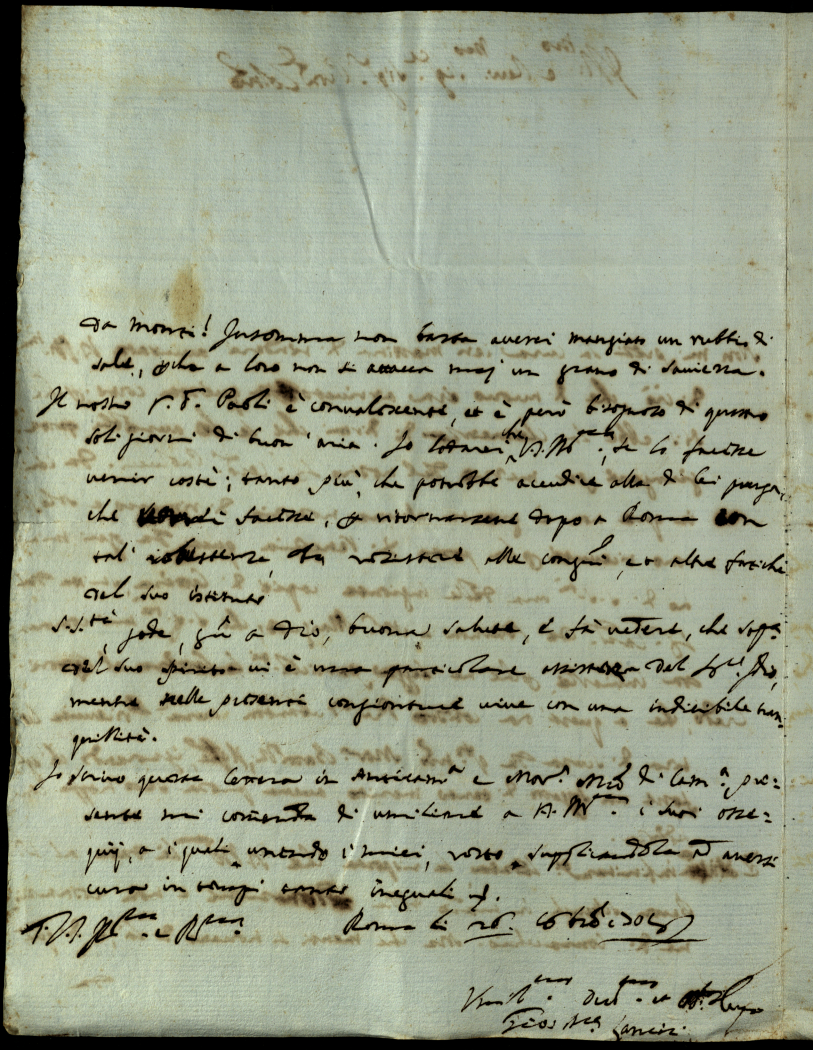 da morirsi! Insomma non basta aversi mangiato un rubbio di
sale, che a loro non si attacca mai un grano di saviezza.
Il nostro P. Paoli è convalescente, et è però bisognoso di
soli giorni di buon'aria. Io loderei che V.S. Ill.ma se lo facesse
venir costì; tanto più, che potrebbe accudire alla di lei purga,
che facesse, e ritornarsene dopo a Roma con
tal da resistere alle et altre fatiche
del suo istituto
S. S.tà gode, grã a Dio, buona salute, e fà vedere, che sopra
del suo spirito vi è una particolare assistenza del Sig.re Iddio,
mentre nelle presenti congionture vive con una indicibile tran-
quillità.
Io scrivo questa lettera in Anticam.a e Mons. di Cam.a pre-
sente mi comanda di umiliare a V.S. Ill.ma i suoi osse-
quij, a i quali unendo i miei, resto supplicandola ad aversi
cura in tempi tanto ineguali
Di V.S. Ill.ma e R.ma Roma li 26
Umil.mo Dev.mo et
Gio: M.a Lancisi